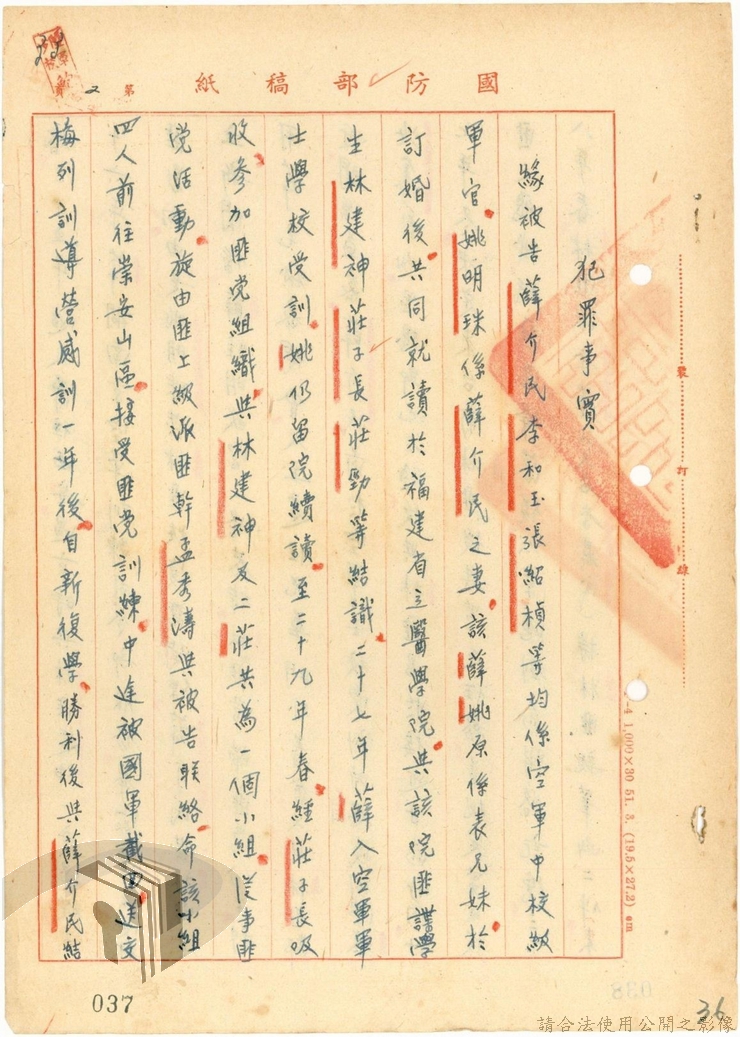 國防部稿紙
第 2
犯罪事實
緣被告薛介民李和玉張紹楨等均係空軍中校級
軍官姚明珠係薛介民之妻該薛姚原係表兄妹於
訂婚後共同就讀於福建省立醫學院與該院匪諜學
生林建神莊子長莊勁等結識二十七年薛入空軍軍
士學校受訓姚仍留院續讀至二十九年春經莊子長吸
收參加匪党組織與林建神及二莊共為一個小組從事匪
党活動旋由匪上級派匪幹孟秀濤與被告联絡命該小組
四人前往崇安山區接受匪党訓練中途被國軍截回送交
梅列訓導營感訓一年後自新復學勝利後與薛介民結
裝
訂
線
-4 1,000×30 51. 3. (19.5×27.2) cm
037
038
36
請合法使用公開之影像